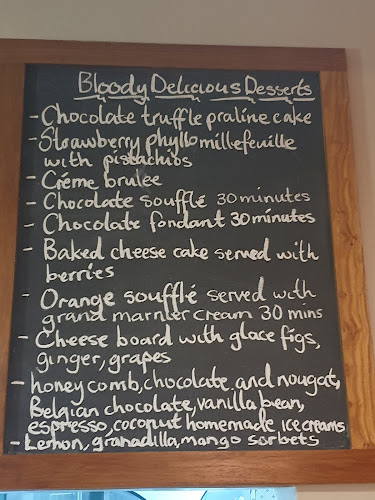 Bloody Delicious Desserts
- Chocolate truffle praline cake
- Strawberry phyllo millefeuille
with pistachios
- Créme brulee
- Chocolate soufflé 30 minutes
- Chocolate fondant 30 minutes
- Baked cheese cake served with
berries
- Orange soufflé served with
grand marnier cream 30 mins
- Cheese board with glace figs,
ginger, grapes
- honeycomb, chocolate and nougat,
Belgian chocolate, vanilla bean,
espresso, coconut homemade ice creams
- Lemon, granadilla, mango sorbets